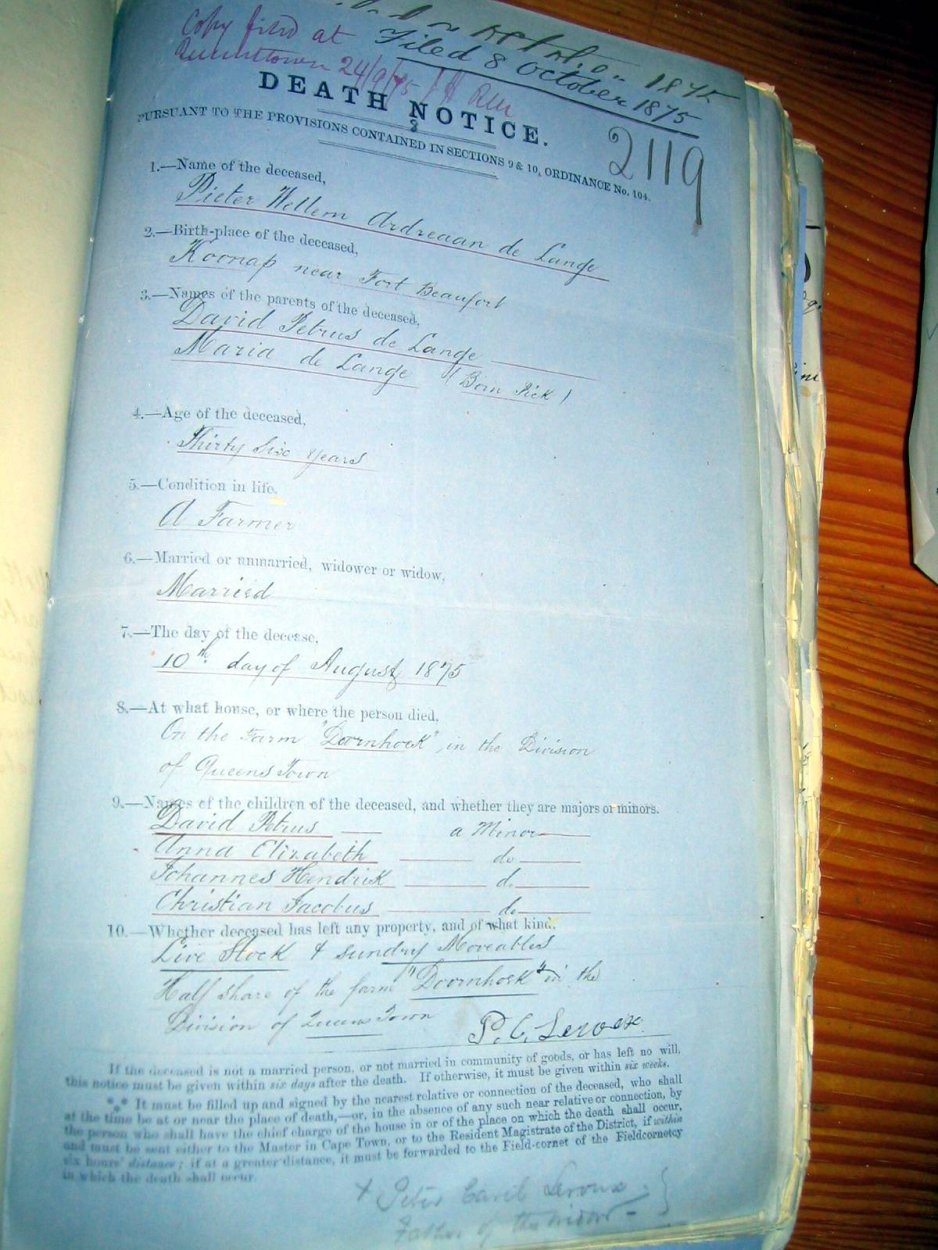 1875
Copy filed at
Filed 8 October 1875
Queenstown 24/9/75
DEATH NOTICE.
2119
PURSUANT TO THE PROVISIONS CONTAINED IN SECTIONS 9 & 10, ORDINANCE No. 104.
1.—Name of the deceased,
Pieter Willem Ardreaan de Lange
2.—Birth-place of the deceased,
Koonap near Fort Beaufort
3.—Names of the parents of the deceased,
David Petrus de Lange
Maria de Lange (Born Pick)
4.—Age of the deceased,
Thirty five years
5.—Condition in life,
A Farmer
6.—Married or unmarried, widower or widow,
Married
7.—The day of the decease,
10th day of August 1875
8.—At what house, or where the person died,
On the Farm "Doornhoek", in the Division
of Queens Town
9.—Names of the children of the deceased, and whether they are majors or minors.
David Petrus — a Minor
Anna Elizabeth — do
Johannes Hendrik — do
Christian Jacobus — do
10.—Whether deceased has left any property, and of what kind.
Live Stock & sundry Moveables
Half share of the farm "Doornhoek" in the
Division of Queens Town
P. C. Leroux
If the deceased is not a married person, or not married in community of goods, or has left no will,
this notice must be given within six days after the death. If otherwise, it must be given within six weeks.
⁂ It must be filled up and signed by the nearest relative or connection of the deceased, who shall
at the time be at or near the place of death,—or, in the absence of any such near relative or connection, by
the person who shall have the chief charge of the house in or of the place on which the death shall occur,
and must be sent either to the Master in Cape Town, or to the Resident Magistrate of the District, if within
six hours' distance; if at a greater distance, it must be forwarded to the Field-cornet of the Fieldcornetcy
in which the death shall occur.
+ Peter Carel Leroux
Father of the widow